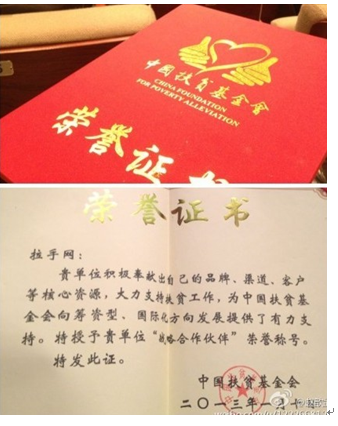 中国扶贫基金會
CHINA FOUNDATION
FOR POVERTY ALLEVIATION
荣誉证书
荣誉证书
拉手网：
贵单位积极奉献出自己的品牌、渠道、客户
等核心资源，大力支持扶贫工作，为中国扶贫基
金会向筹资型、国际化方向发展提供了有力支
持。特授予贵单位“战略合作伙伴”荣誉称号。
特发此证。
中国扶贫基金会
二〇一三年一月十